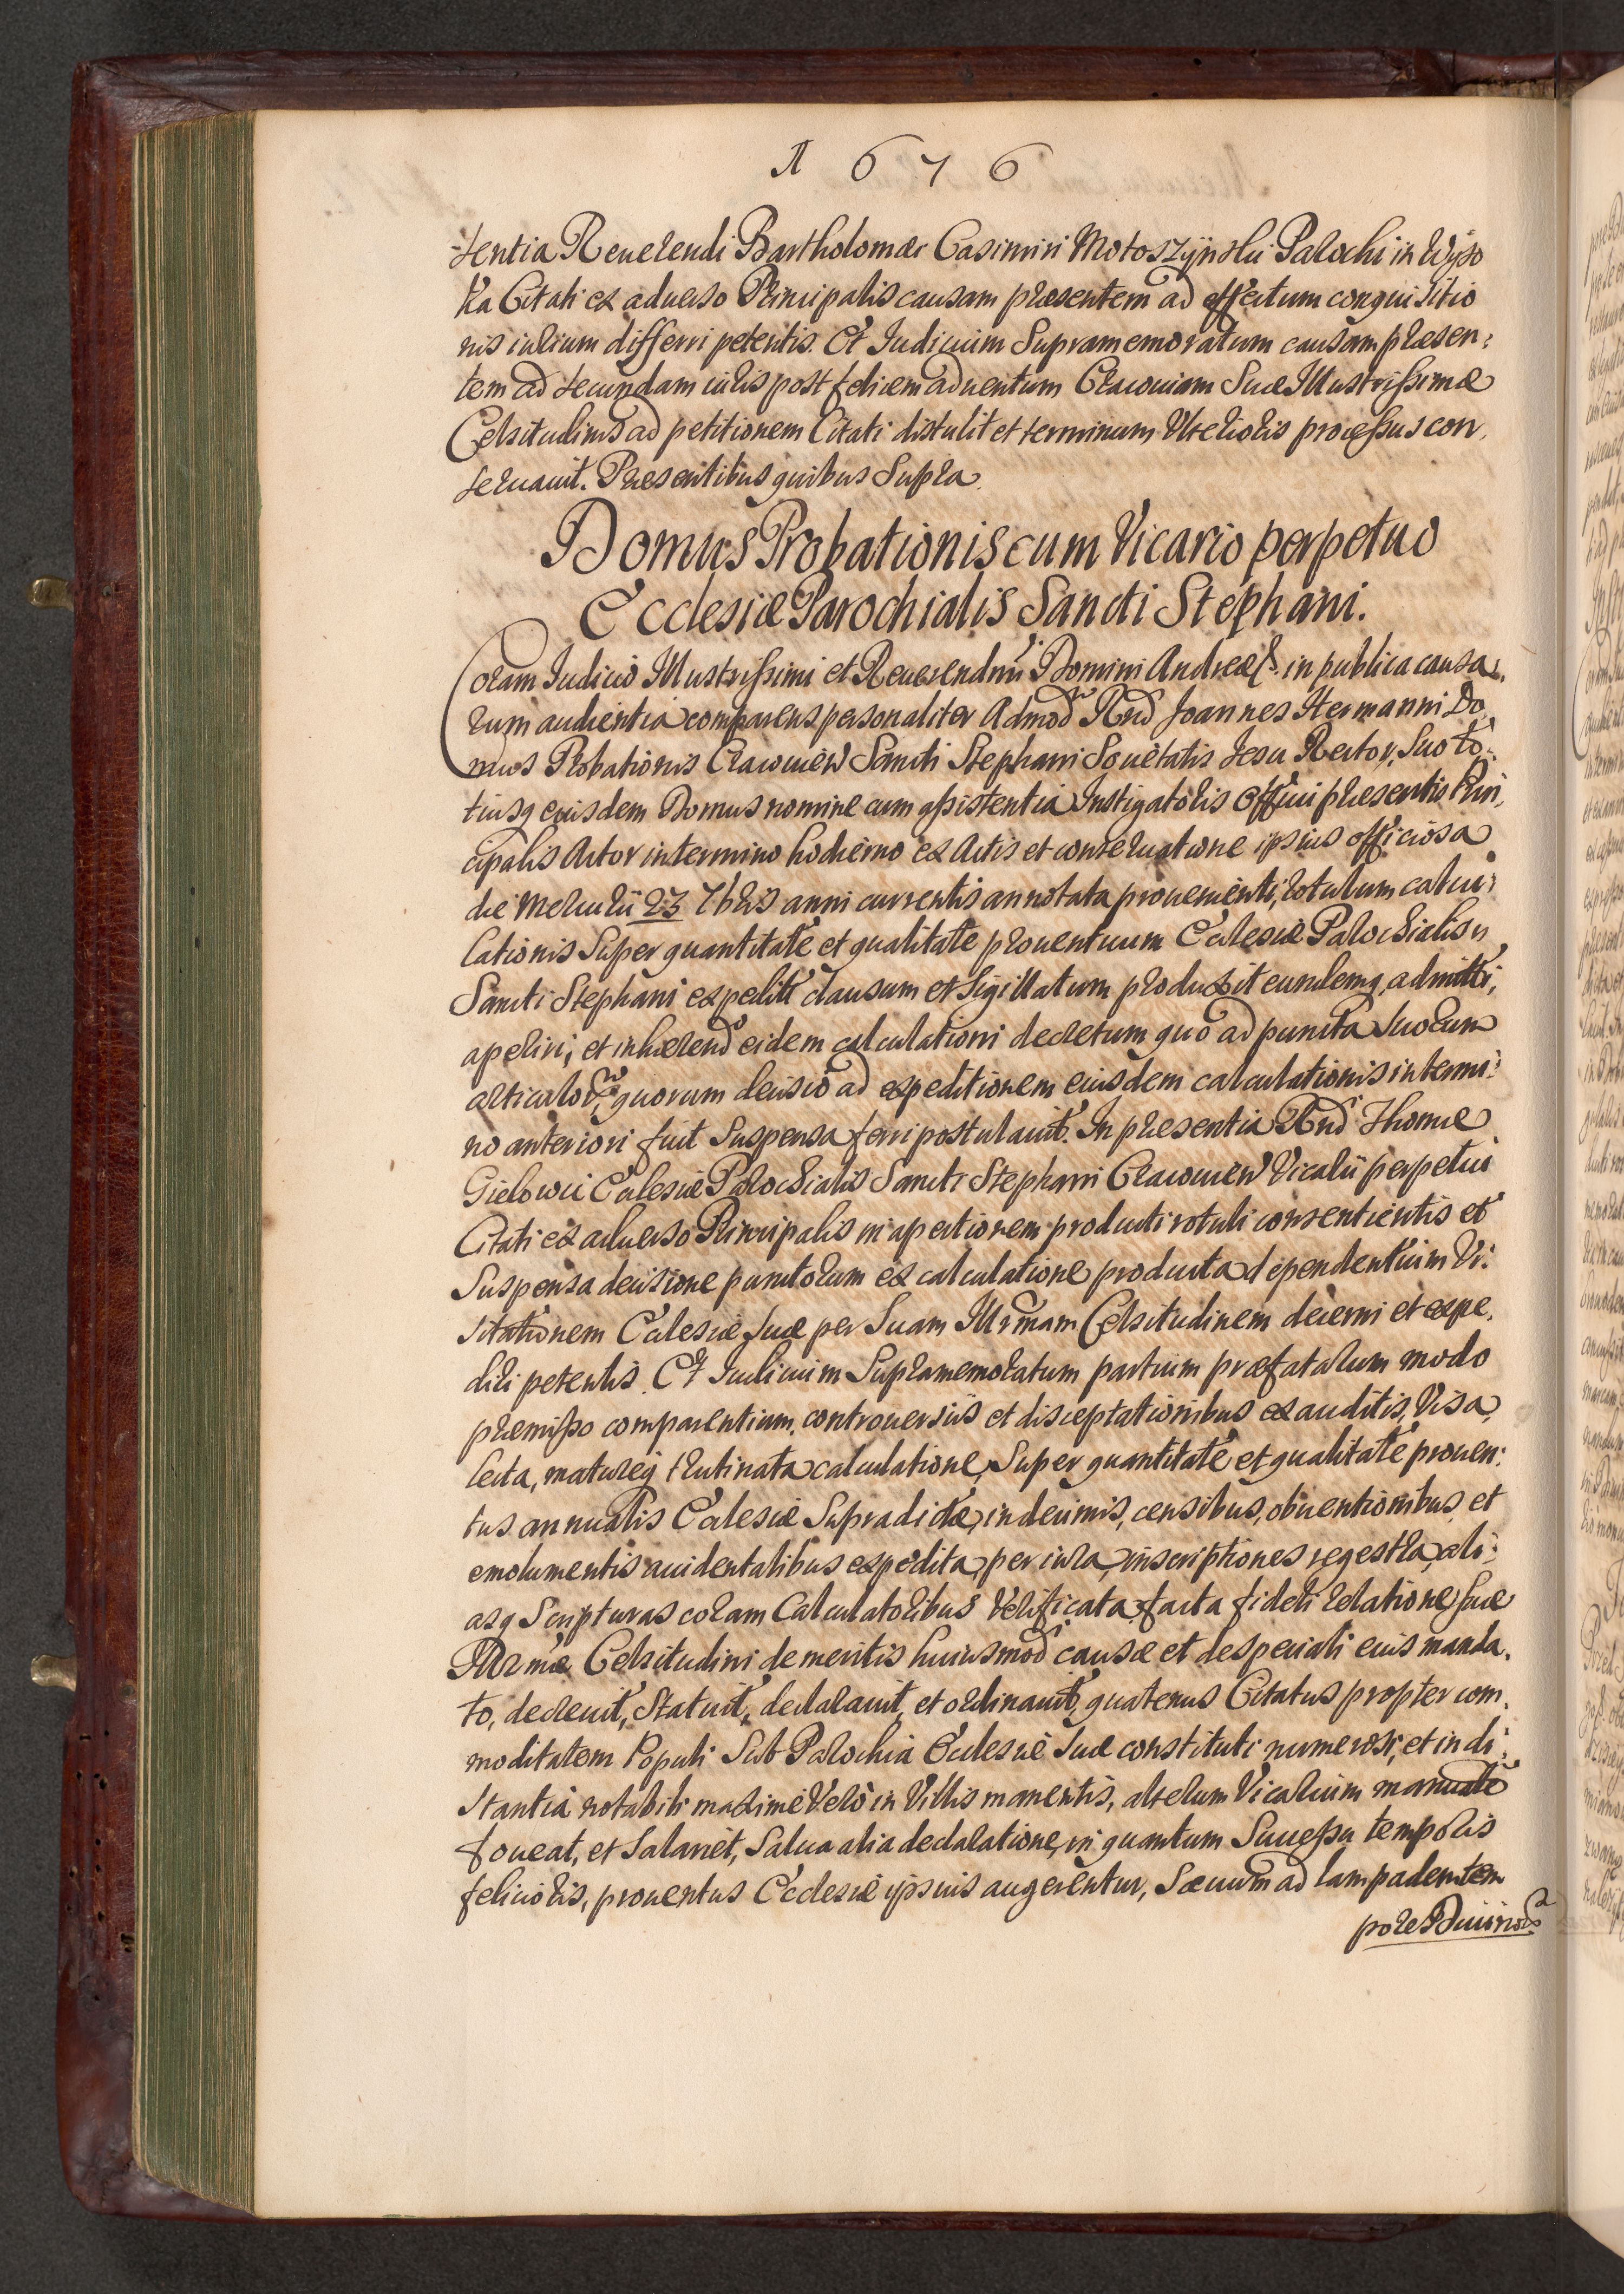 A 676
-tentia Reuerendi Bartholomæi Casimiri Motoszÿnski Parochi in Wyso
ka Citati ex aduerso Principalis causam præsentem ad effectum conquisitio
nis iurium differri petentis. Et Iudicium Supramemoratum causam præsen:
tem ad secundam iuris post felicem aduentum Cracouiam Suæ Illustrissimæ
Celsitudinis ad petitionem Citati distulit et terminum Vlterioris processus con
seruauit. Præsentibus quibus Supra.
Domus Probationis cum Vicario perpetuo
Ecclesiæ Parochialis Sancti Stephani.
Coram Iudicio Illustrissimi et Reuerendmi Domini Andreæ &. in publica causa.
rum audientia comparens personaliter Admod Rnd Joannes Hermanni Do
mus Probationis Cracouien Sancti Stephani Societatis Iesu Rector, Suo to:
tiusq eiusdem Domus nomine cum assistentia Instigatoris Officii præsentis Prin
cipalis Actor in termino hodierno ex Actis et conseruatione ipsius officiosa
die Mercurii 23 7bris anni currentis annotata proueniénti, rotulum calcu:
lationis Super quantitate et qualitate prouentuum Ecclesiæ Parochialis
Sancti Stephani expediti clausum et Sigillatum produxit eundemq, admitti,
aperiri, et inhærend eidem calculationi decretum quo ad puncta Suorum
articulor, quorum decisio ad expeditionem eiusdem calculationis in termi:
no anteriori fuit Suspensa ferri postulauit. In præsentia Rnd Thomæ
Gielowii Ecclesiæ Parochialis Sancti Stephani Cracouien Vicarii perpetui
Citati ex aduerso Principalis in apertionem producti rotuli consentientis et
Suspensa decisione punctorum ex calculatione producta dependentium Vi:
sitationem Ecclesiæ Suæ per Suam Illrmam Celsitudinem decerni et expe.
diri petentis. Et Iudicium Supramemoratum partium præfatarum modo
præmisso comparentium, controuersiis et disceptationibus exauditis, Visa,
lecta, matureq trutinata calculatione, Super quantitate et qualitate prouen:
tus annualis Ecclesiæ Supradictæ, in decimis, censibus, obuentionibus, et
emolumentis accidentalibus expedita, per iura, inscriptiones, regestra, ali:
asq Scripturas coram Calculatoribus Verificata, facta fideli relatione Suæ
Illrmæ Celsitudini de meritis huiusmod causæ et de speciali eius manda.
to, decreuit, Statuit, declarauit, et ordinauit, quatenus Citatus propter com.
moditatem Populi Sub Parochia Ecclesiæ Suæ constituti numerosi, et in di:
stantia notabili maxime Vero in Villis manentis, alterum Vicarium manuale
foueat, et Salariet, Salua alia declaratione, in quantum Successu temporis
felicioris, prouentus Ecclesiæ ipsius augerentur, Sæuum ad lampadem tem
pore Diuinor